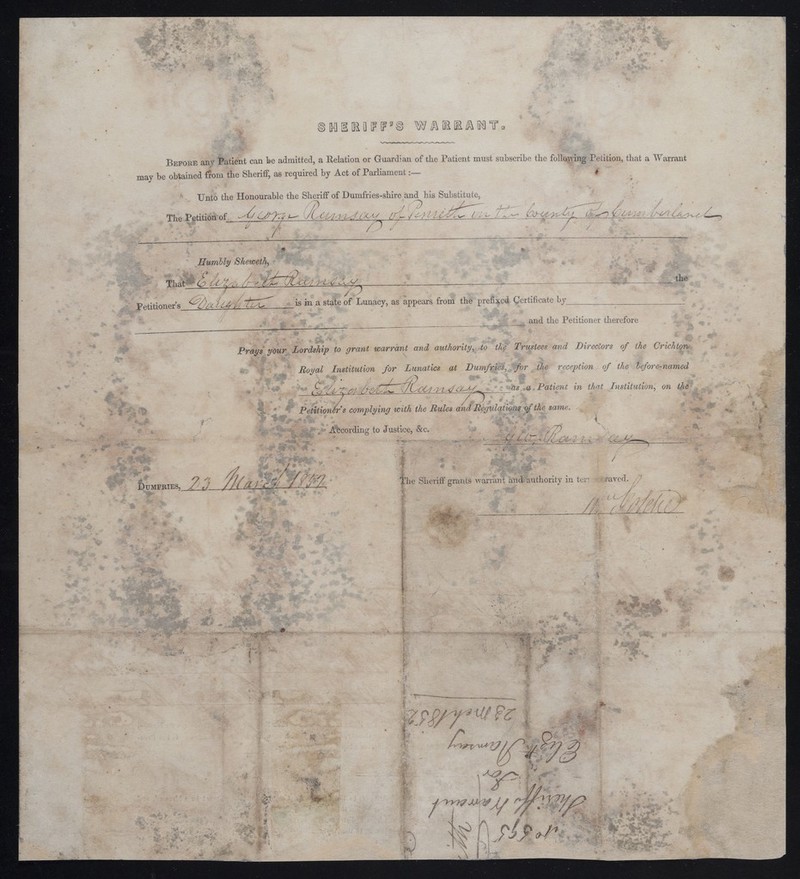 SHERIFF'S WARRANT.
BEFORE any Patient can be admitted, a Relation or Guardian of the Patient must subscribe the following Petition, that a Warrant
may be obtained from the Sheriff, as required by Act of Parliament:—
Unto the Honourable the Sheriff of Dumfries-shire and his Substitute,
The Petition of George Ramsay of Penrith in the County of Cumberland
Humbly Sheweth,
That Elizabeth Ramsay the
Petitioner's Daughter is in a state of Lunacy, as appears from the prefixed Certificate by
and the Petitioner therefore
Prays your Lordship to grant warrant and authority, to the Trustees and Directors of the Crichton
Royal Institution for Lunatics at Dumfries, for the reception of the before-named
Elizabeth Ramsay as a Patient in that Institution, on the
Petitioner's complying with the Rules and Regulations of the same.
According to Justice, &c.
Geo. Ramsay
DUMFRIES, 23 March 1852
The Sheriff grants warrant and authority in craved.
No 595
Sheriffs Warrant
for
Elizth Ramsay
23 Mch 1852